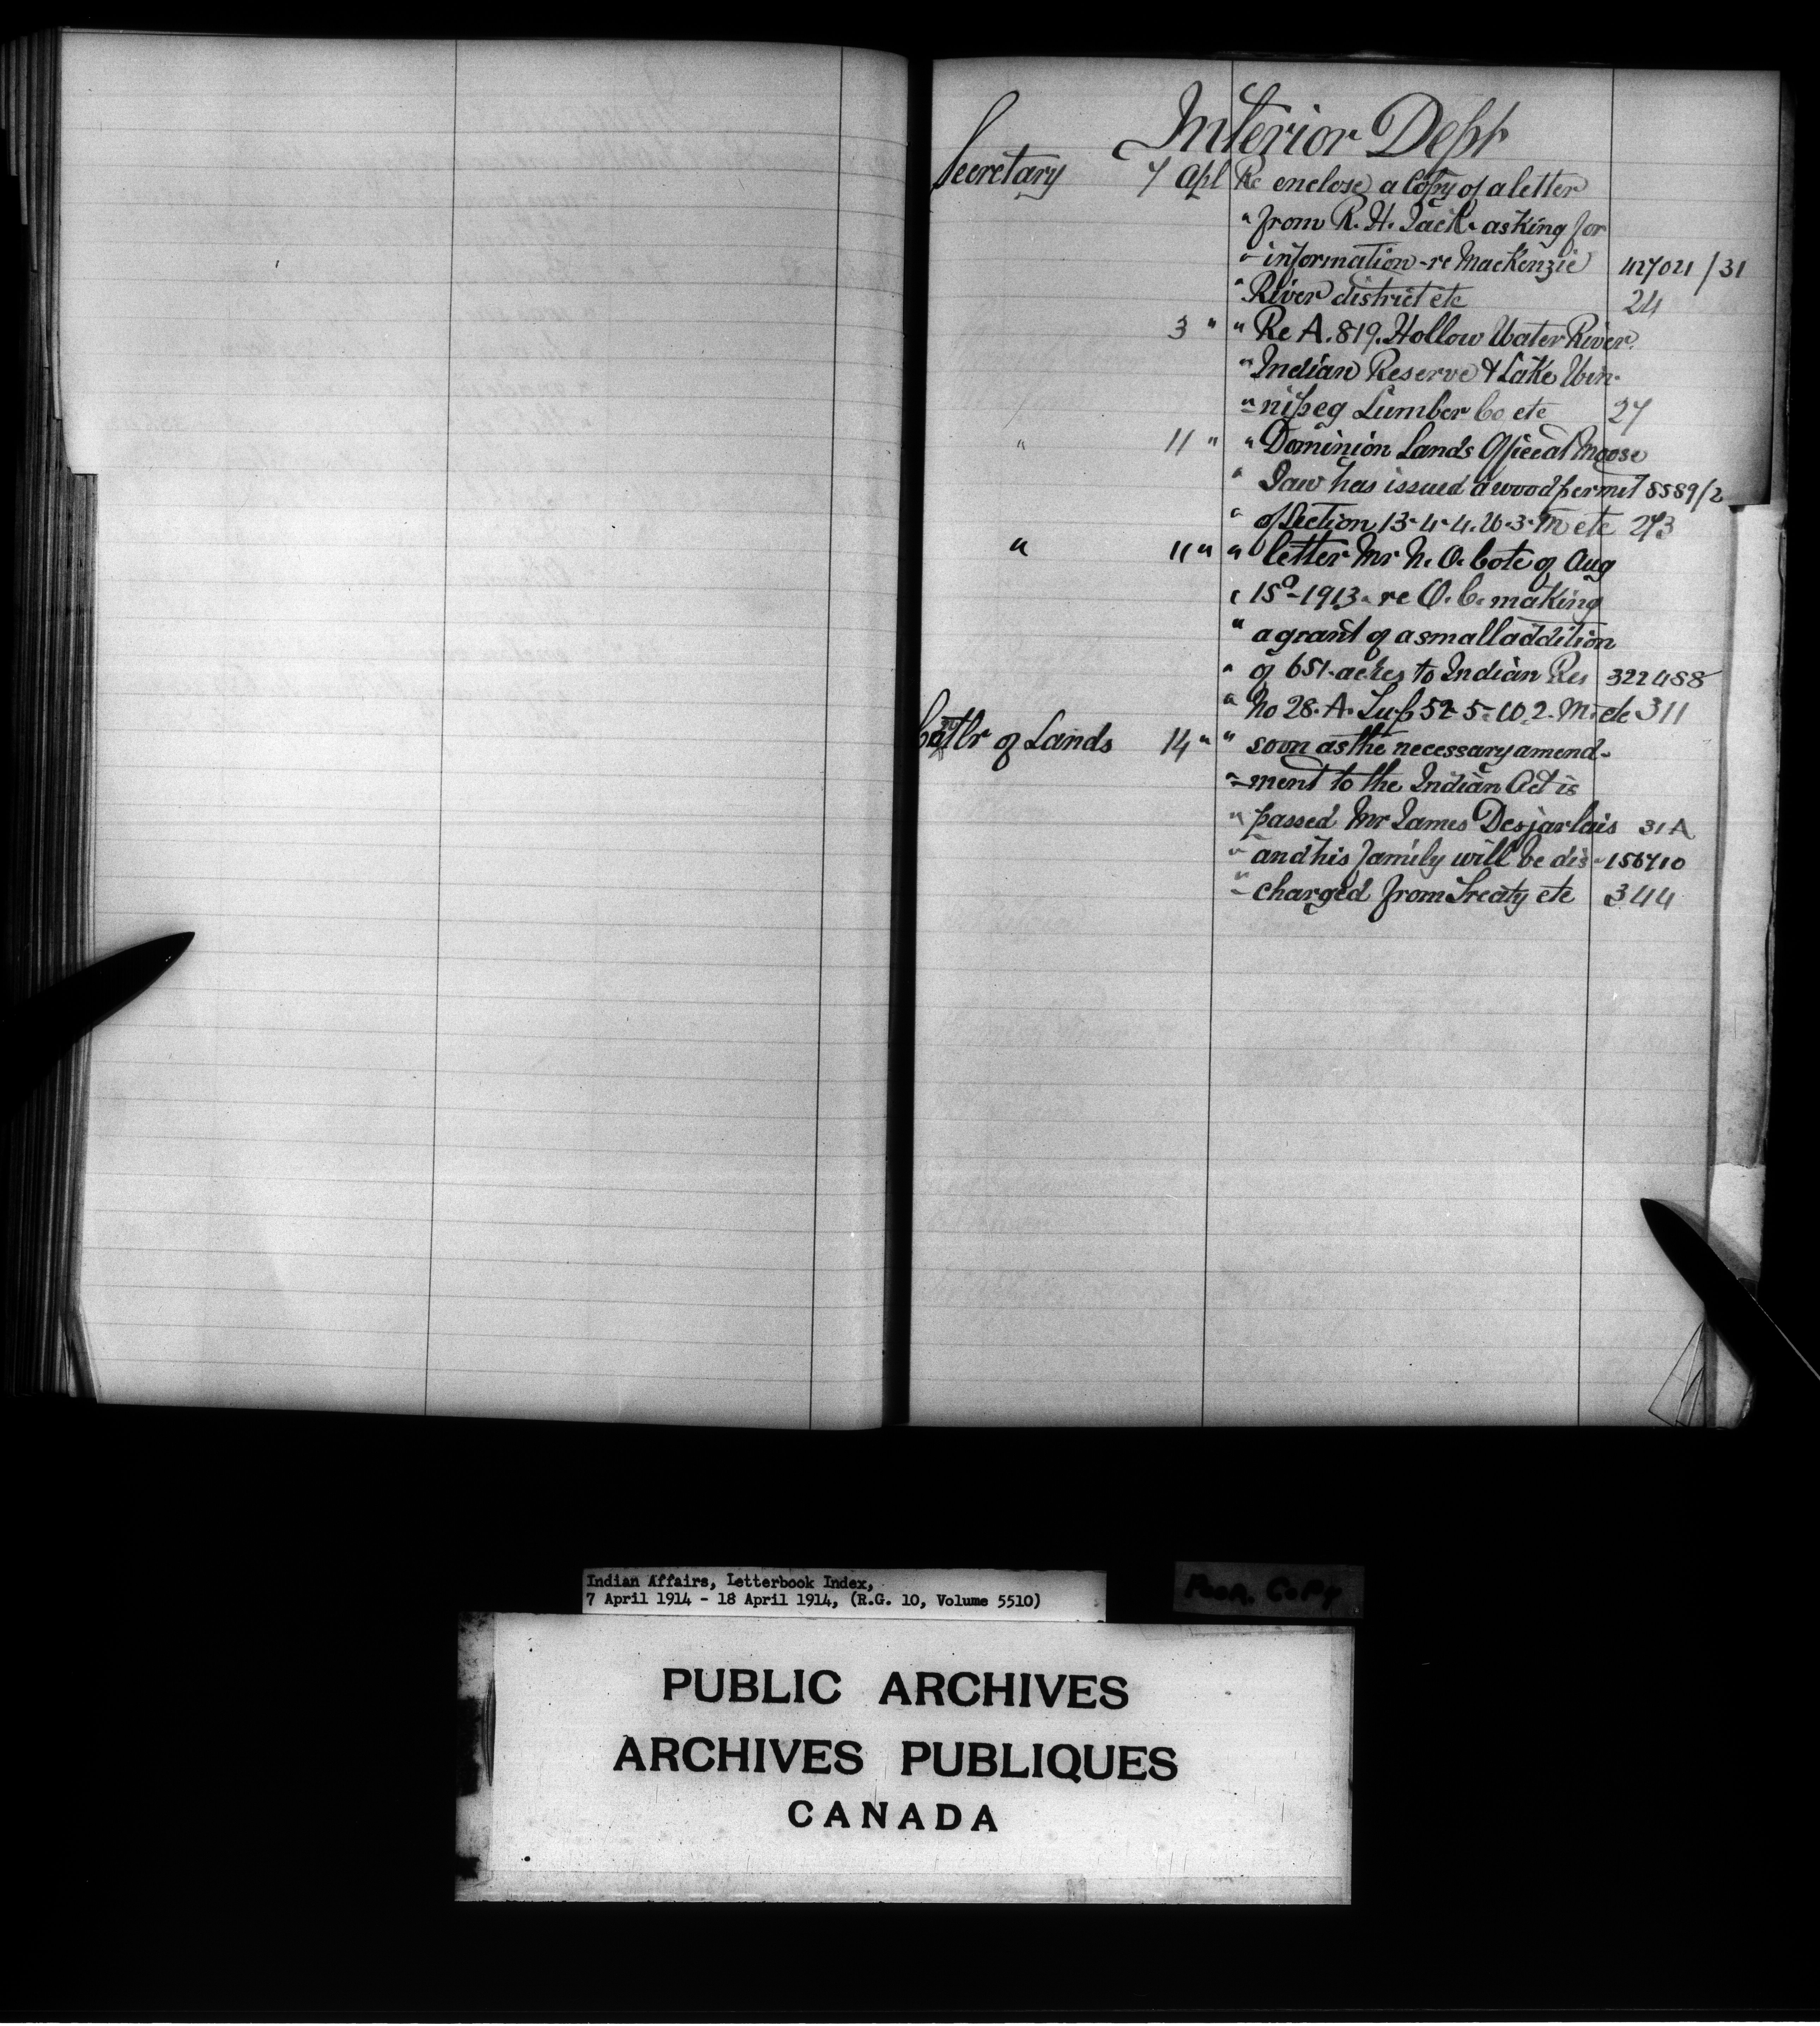 Interior Dept
Secretary 7 Apl Re enclose a Copy of a letter
" from R. H. Jack asking for
" information - re MacKenzie 427021/31
" River district etc 24
3 " " Re A. 819. Hollow Water River
" Indian Reserve & Lake Win-
" nipeg Lumber Co etc 27
" 11 " " Dominion Lands Office at Moose
" Jaw has issued a wood permit 8589/2
" of Section 13-4-4. W. 3. M etc 273
" 11 " " letter Mr N. O. Cote of Aug
" 15th - 1913 - re O. C. making
" a grant of a small addition
" of 651 acres to Indian Res 322488
" No 28. A. Tup 52-5- W. 2. M. etc 311
Contlr of Lands 14 " " soon as the necessary amend-
" ment to the Indian Act is
" passed Mr James Desjarlais 31A
" and his family will be dis- 156710
" charged from Treaty etc 344
Indian Affairs, Letterbook Index,
7 April 1914 - 18 April 1914, (R.G. 10, Volume 5510)
Poor Copy
PUBLIC ARCHIVES
ARCHIVES PUBLIQUES
CANADA